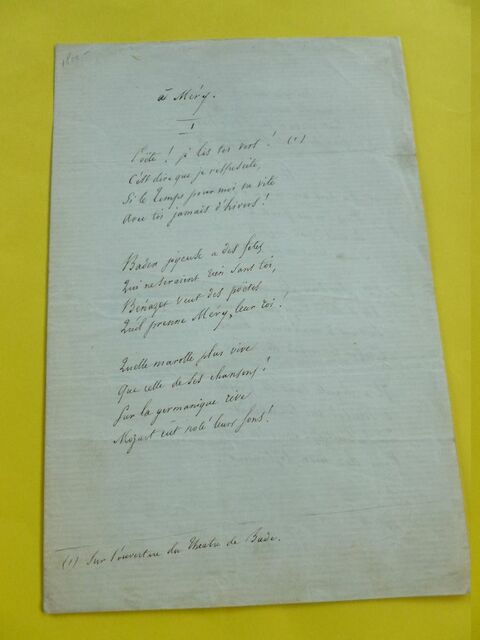 à Méry.
I
Poëte ! je lis tes vers ! (1)
C'est dire que je ressuscite,
Si le temps pour moi va vite
Avec toi jamais d'hivers !
Baden joyeuse a des fêtes
Qui ne seraient rien sans toi,
Bénazet veut des poëtes
Qu'il prenne Méry, leur roi !
Quelle marotte plus vive
Que celle de tes chansons !
Sur la germanique rive
Mozart eût noté leurs sons !
(1) Sur l'ouverture du théâtre de Bade.